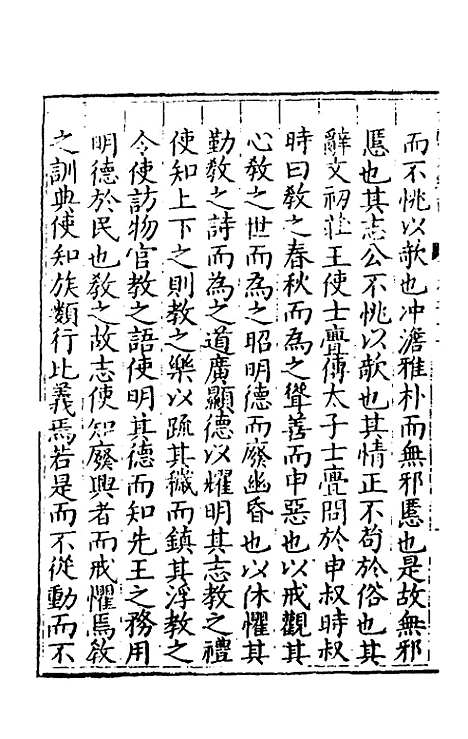 而不恌以歒也冲澹雅朴而無邪慝也是故無邪
慝也其志公不恌以歒也其情正不苟於俗也其
辭文初莊王使士亹傅太子士亹問於申叔時叔
時曰教之春秋而為之聳善而申惡也以戒觀其
心教之世而為之昭明德而廢幽昏也以休懼其
勤教之詩而為之道廣顯德以耀明其志教之禮
使知上下之則教之樂以疏其穢而鎮其浮教之
令使訪物官教之語使明其德而知先王之務用
明德於民也教之故志使知廢興者而戒懼焉教
之訓典使知族類行比義焉若是而不從動而不